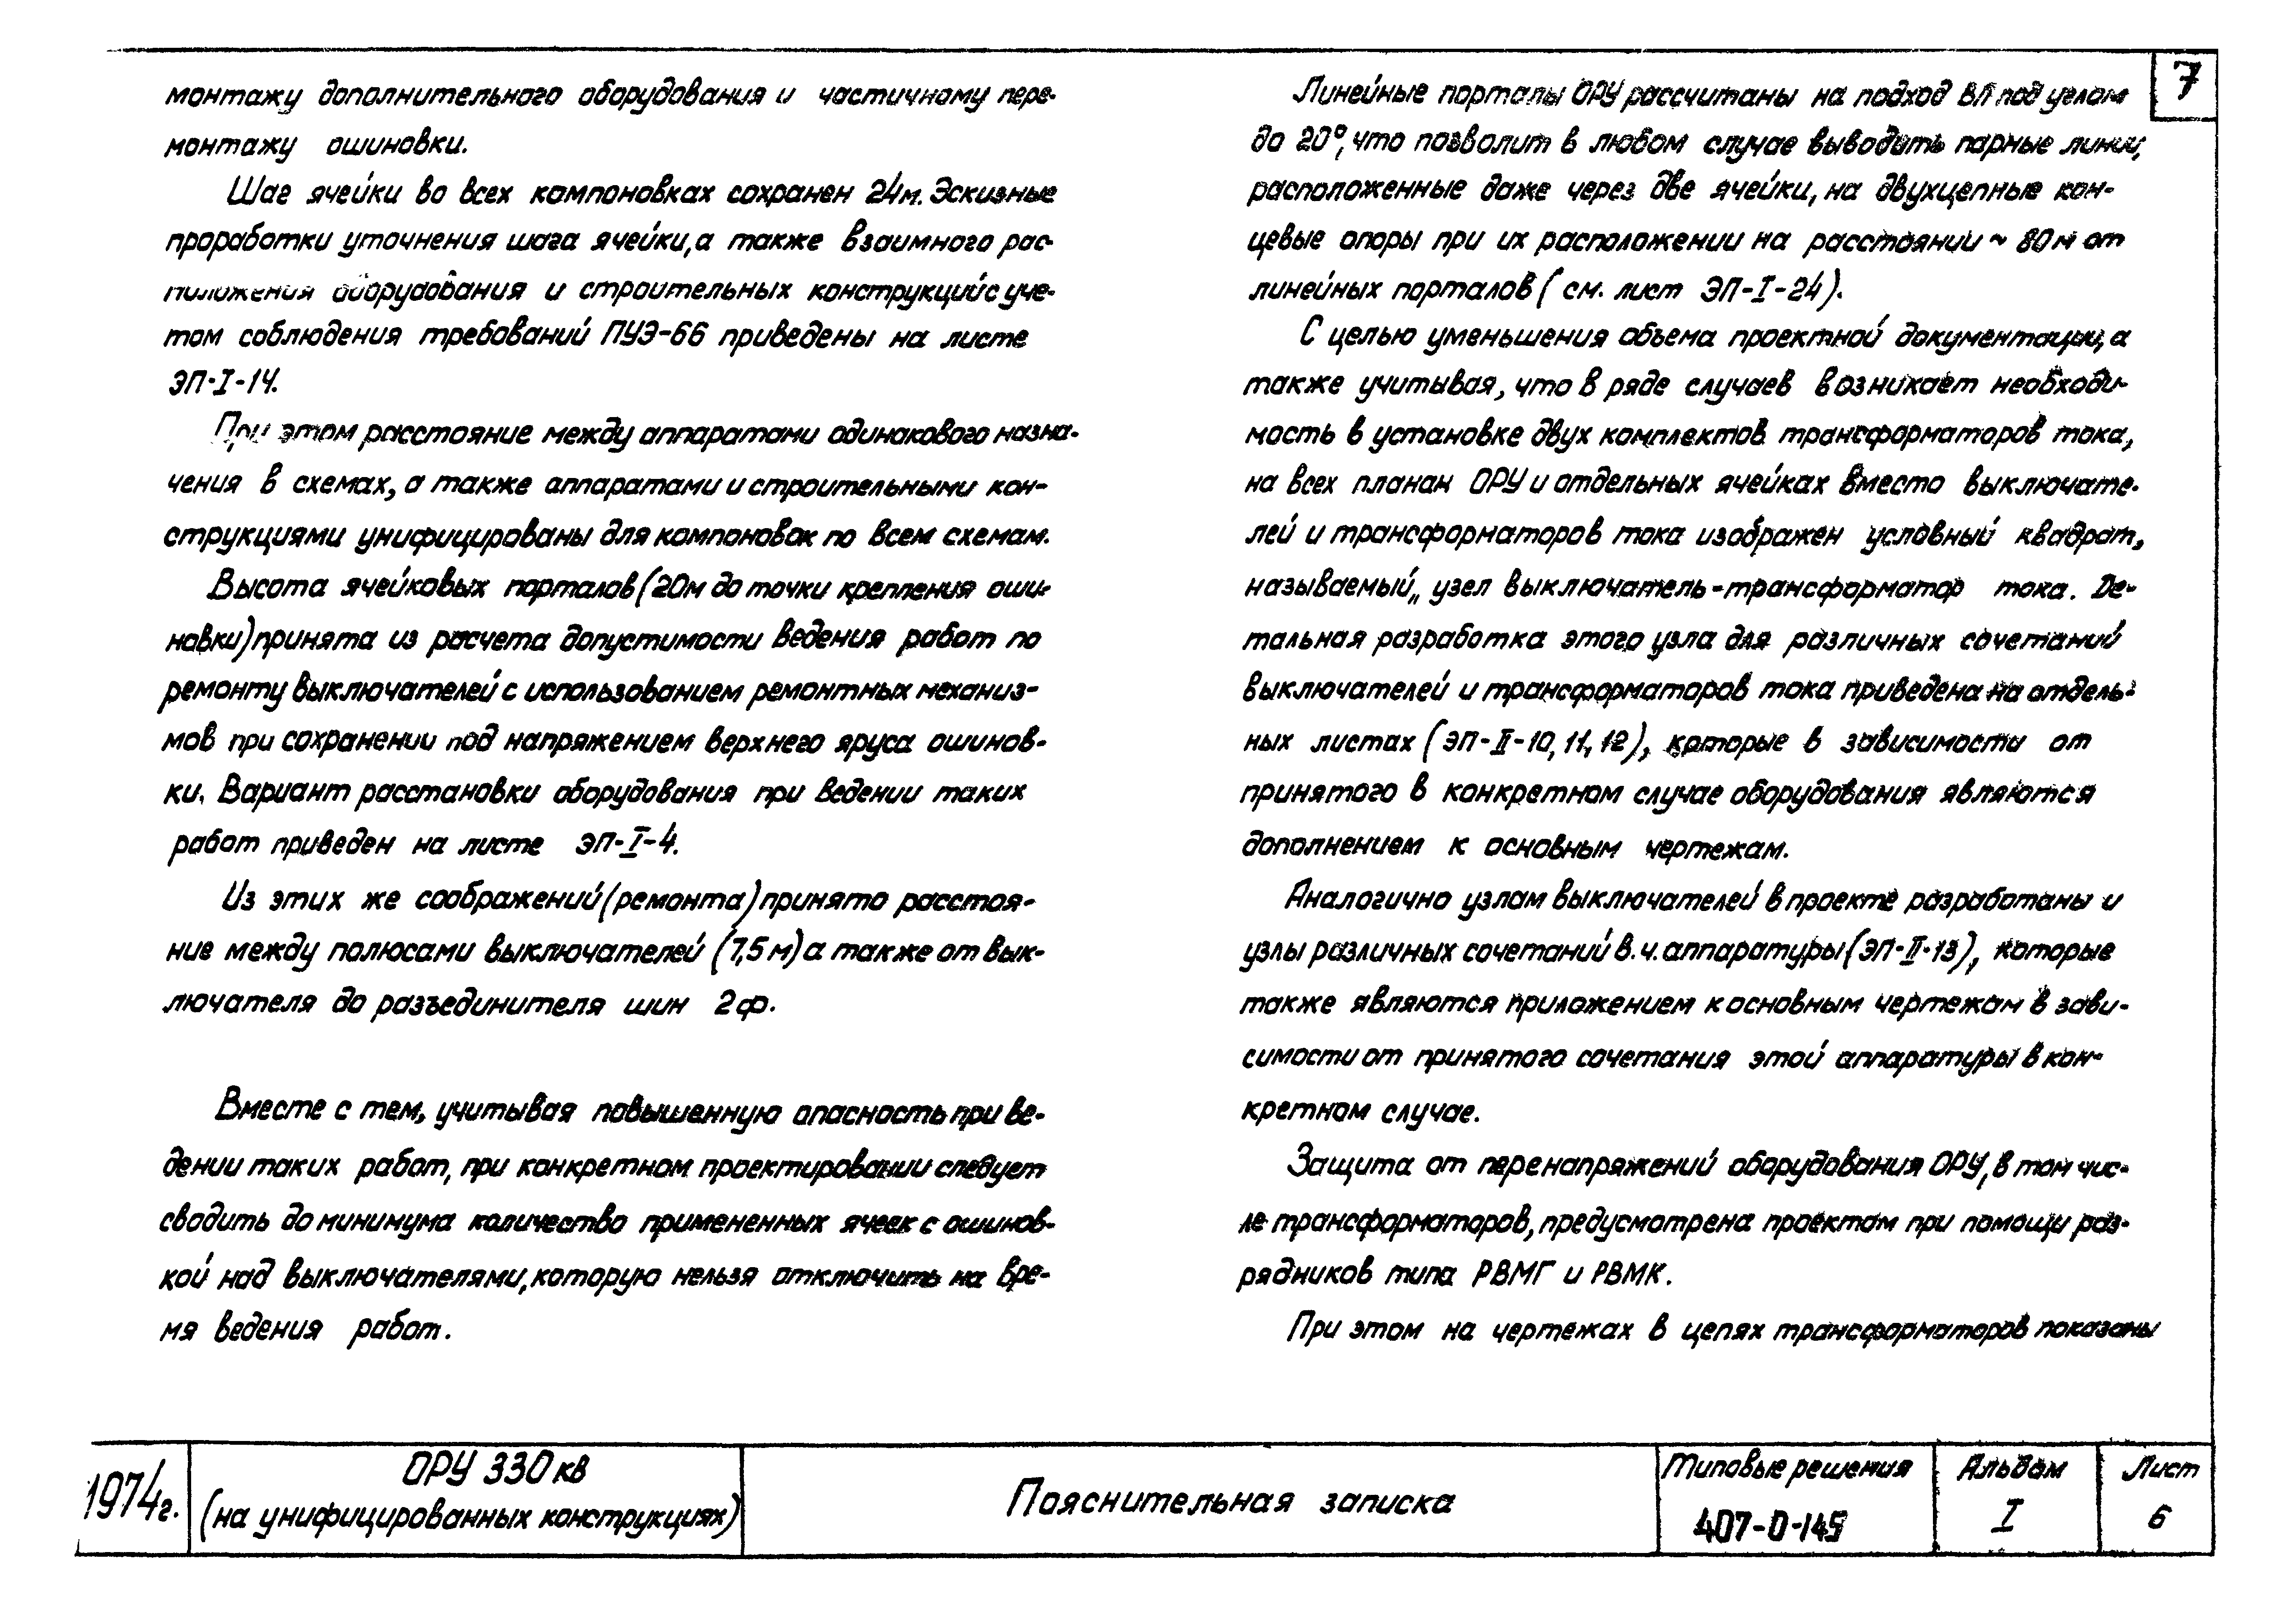 монтажу дополнительного оборудования и частичному пере-
монтажу ошиновки.
Шаг ячейки во всех компоновках сохранен 24м. Эскизные
проработки уточнения шага ячейки, а также взаимного рас-
положения оборудования и строительных конструкций с уче-
том соблюдения требований ПУЭ-66 приведены на листе
ЭП-I-14.
При этом расстояние между аппаратами одинакового назна-
чения в схемах, а также аппаратами и строительными кон-
струкциями унифицированы для компоновок по всем схемам.
Высота ячейковых порталов (20м до точки крепления оши-
новки) принята из расчета допустимости ведения работ по
ремонту выключателей с использованием ремонтных механиз-
мов при сохранении под напряжением верхнего яруса ошинов-
ки. Вариант расстановки оборудования при ведении таких
работ приведен на листе ЭП-I-4.
Из этих же соображений (ремонта) принято расстоя-
ние между полюсами выключателей (7,5 м) а также от вык-
лючателя до разъединителя шин 2ф.
Вместе с тем, учитывая повышенную опасность при ве-
дении таких работ, при конкретном проектировании следует
сводить до минимума количество примененных ячеек с ошинов-
кой над выключателями, которую нельзя отключить на вре-
мя ведения работ.
7
Линейные порталы ОРУ рассчитаны на подход ВЛ под углом
до 20°, что позволит в любом случае выводить парные линии,
расположенные даже через две ячейки, на двухцепные кон-
цевые опоры при их расположении на расстоянии ~ 80 м от
линейных порталов (см. лист ЭП-I-24).
С целью уменьшения объема проектной документации, а
также учитывая, что в ряде случаев возникает необходи-
мость в установке двух комплектов трансформаторов тока,
на всех планах ОРУ и отдельных ячейках вместо выключате-
лей и трансформаторов тока изображен условный квадрат,
называемый „ узел выключатель-трансформатор тока. Де-
тальная разработка этого узла для различных сочетаний
выключателей и трансформаторов тока приведена на отдель-
ных листах (ЭП-II-10, 11, 12), которые в зависимости от
принятого в конкретном случае оборудования являются
дополнением к основным чертежам.
Аналогично узлам выключателей в проекте разработаны и
узлы различных сочетаний в.ч. аппаратуры (ЭП-II-13), которые
также являются приложением к основным чертежам в зави-
симости от принятого сочетания этой аппаратуры в кон-
кретном случае.
Защита от перенапряжений оборудования ОРУ, в том чис-
ле трансформаторов, предусмотрена проектом при помощи раз-
рядников типа РВМГ и РВМК.
При этом на чертежах в цепях трансформаторов показаны
1974г.
ОРУ 330 кв
(на унифицированных конструкциях)
Пояснительная записка
Типовые решения
407-0-145
Альбом
I
Лист
6